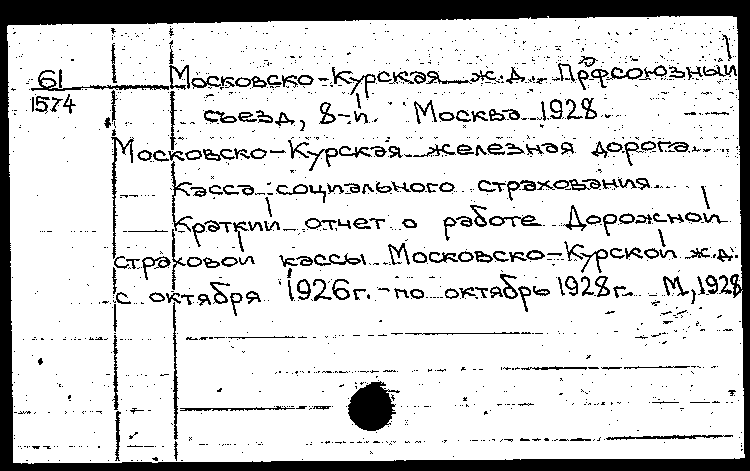 61
1574
Московско-Курская ж.д. Профсоюзный
съезд, 8-й. Москва 1928
Московско-Курская железная дорога
Касса социального страхования.
Краткий отчет о работе Дорожной
страховой кассы Московско-Курской ж.д.
с октября 1926г.-по октябрь 1928г. М,1928